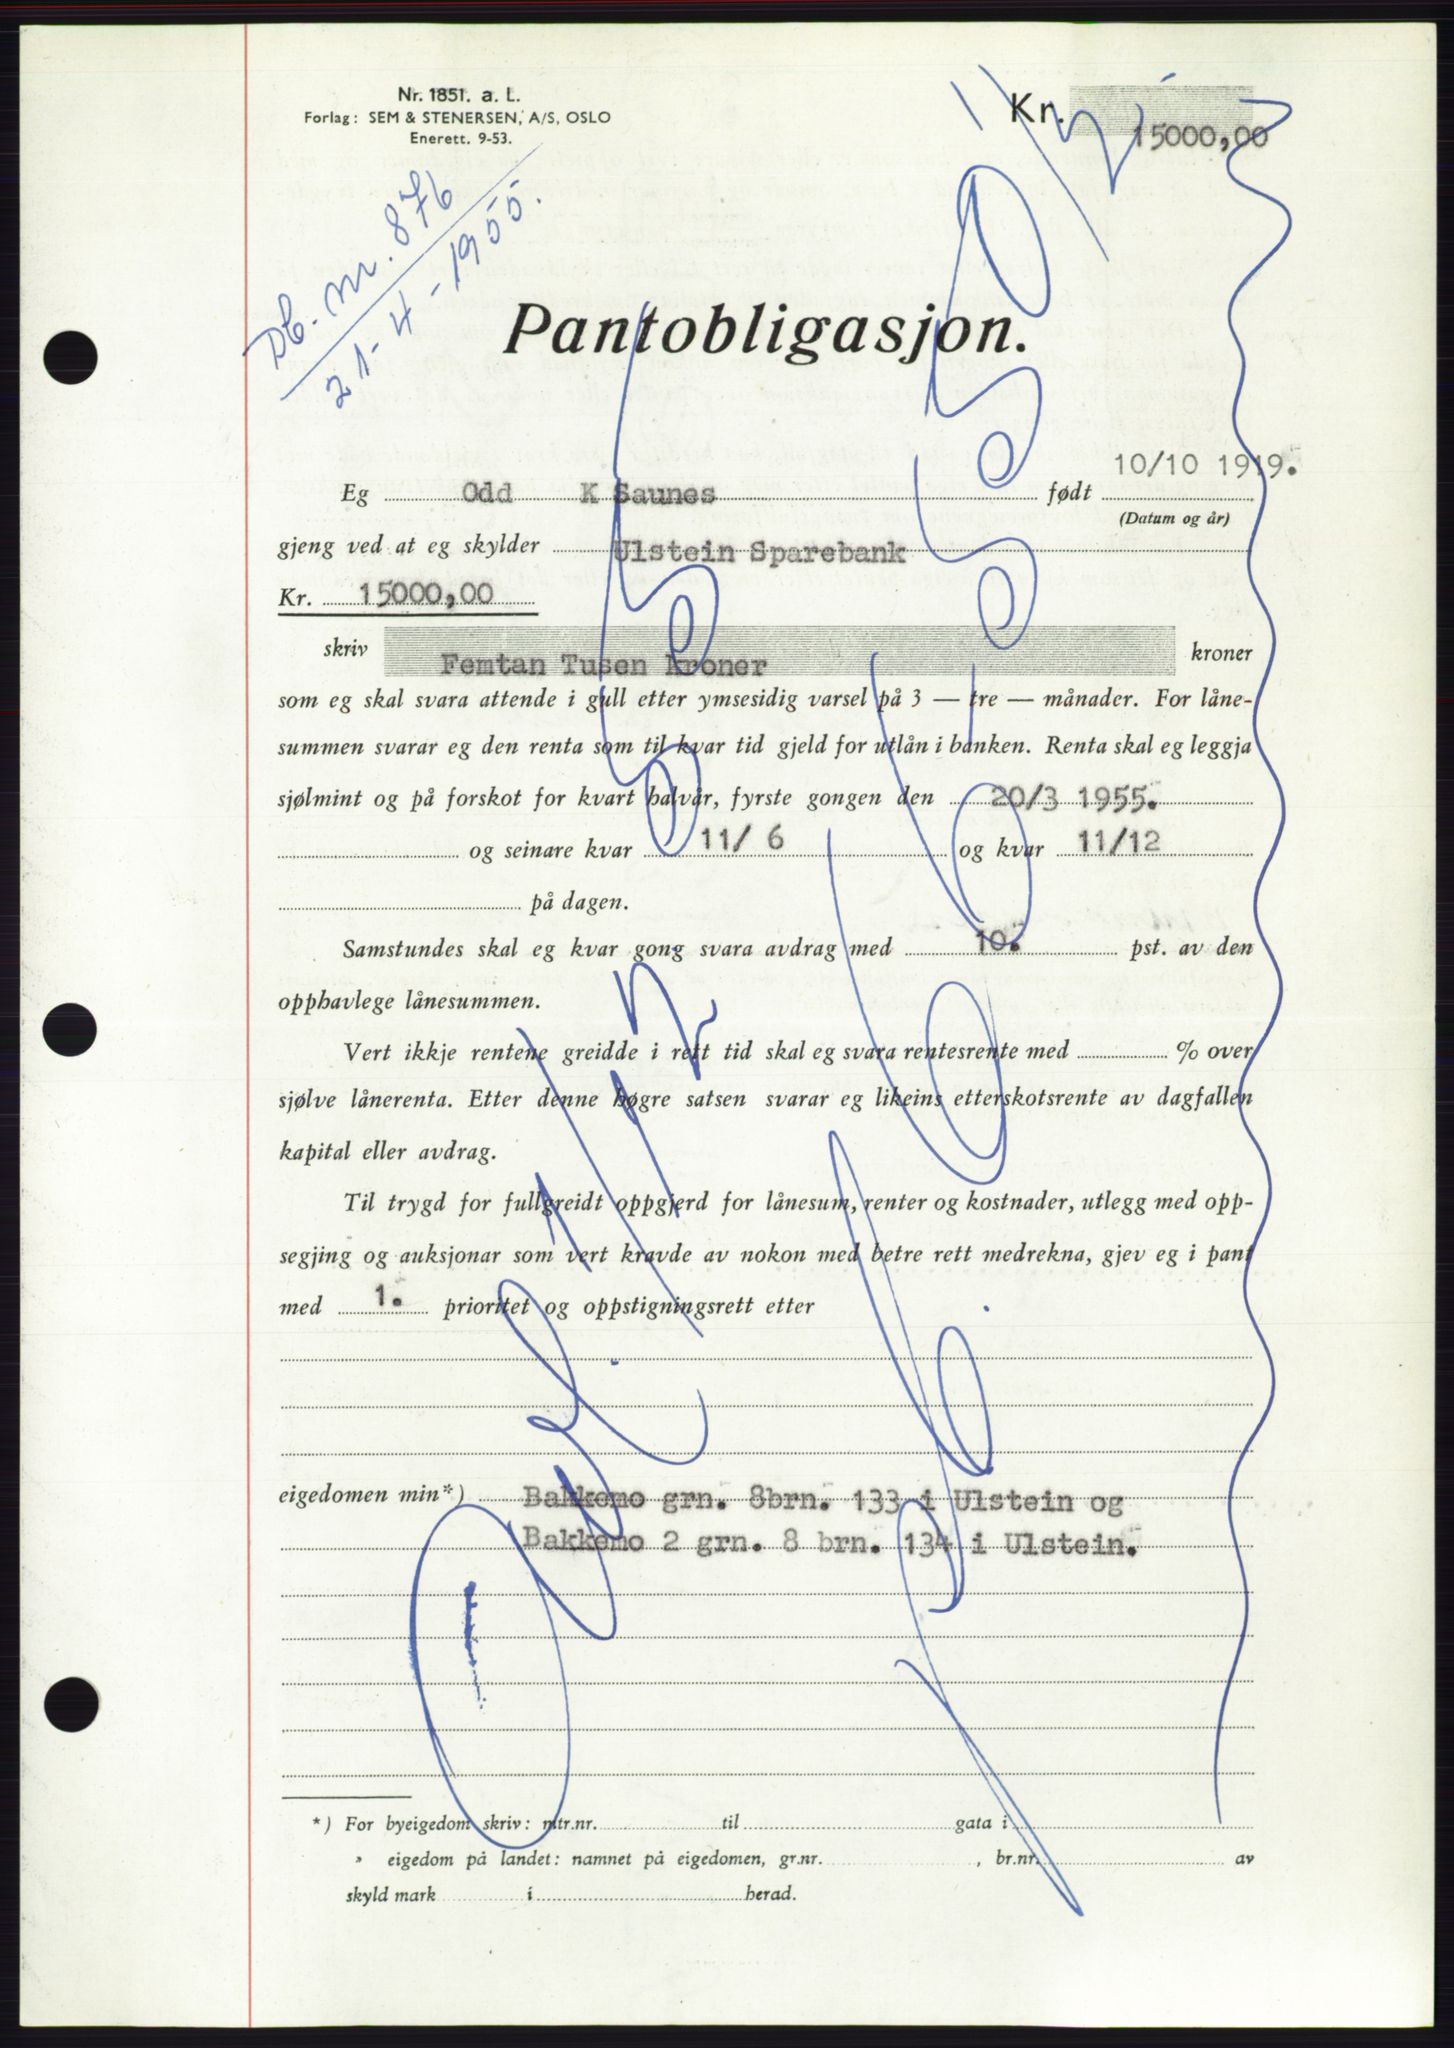 Nr. 1851. a. L.
Forlag: SEM & STENERSEN, A/S, OSLO
Enerett. 9-53.
Kr. 15000,00
Db. nr. 876
21-4-1955.
Pantobligasjon.
Eg Odd K Saunes født 10/10 1919.
(Datum og år)
gjeng ved at eg skylder Ulstein Sparebank
Kr. 15000,00
skriv Femtan Tusen Kroner kroner
som eg skal svara attende i gull etter ymsesidig varsel på 3 — tre — månader. For låne-
summen svarar eg den renta som til kvar tid gjeld for utlån i banken. Renta skal eg leggja
sjølmint og på forskot for kvart halvår, fyrste gongen den 20/3 1955.
og seinare kvar 11/ 6 og kvar 11/12
på dagen.
Samstundes skal eg kvar gong svara avdrag med 10. pst. av den
opphavlege lånesummen.
Vert ikkje rentene greidde i rett tid skal eg svara rentesrente med % over
sjølve lånerenta. Etter denne høgre satsen svarar eg likeins etterskotsrente av dagfallen
kapital eller avdrag.
Til trygd for fullgreidt oppgjerd for lånesum, renter og kostnader, utlegg med opp-
segjing og auksjonar som vert kravde av nokon med betre rett medrekna, gjev eg i pant
med 1. prioritet og oppstigningsrett etter
eigedomen min*) Bakkemo grn. 8brn. 133 i Ulstein og
Bakkemo 2 grn. 8 brn. 134 i Ulstein.
*) For byeigedom skriv: mtr.nr. til gata i
» eigedom på landet: namnet på eigedomen, gr.nr. , br.nr. av
skyld mark i herad.